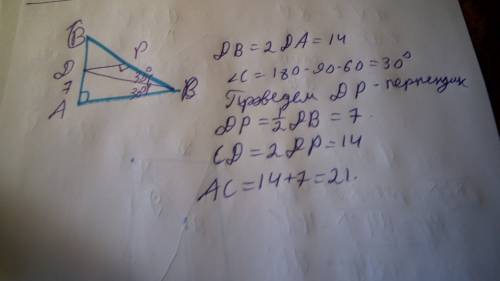 B
D
P
7
30°
30°
A
B
DB = 2DA = 14
∠C = 180 - 90 - 60 = 30°
Проведем DP - перпендик
DP = 1/2 DB = 7.
CD = 2DP = 14
AC = 14 + 7 = 21.